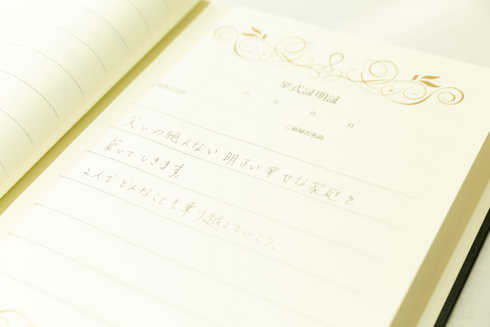 挙式証明証
年 月 日
ご新婦お名前
笑いの絶えない明るい幸せな家庭を
築いていきます。
2人でどんなことも乗り越えていこう。